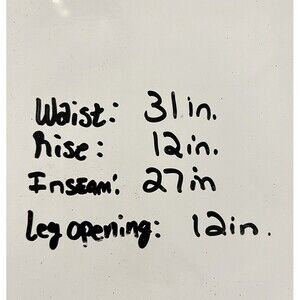 Waist: 31in.
Rise: 12in.
Inseam: 27in
Leg opening: 12in.